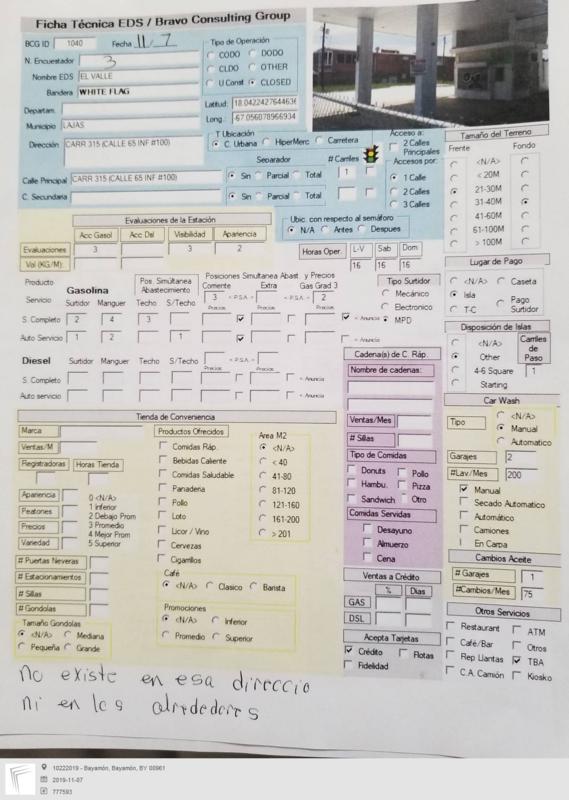 Ficha Técnica EDS / Bravo Consulting Group
BCG ID 1040 Fecha 11/7
N. Encuestador 3
Nombre EDS EL VALLE
Bandera WHITE FLAG
Departam.
Municipio LAJAS
Dirección CARR 315 (CALLE 65 INF #100)
Calle Principal CARR 315 (CALLE 65 INF #100)
C. Secundaria
Tipo de Operación
CODO DODO
CLDO OTHER
U Const CLOSED
Latitud: 18.0422427644636
Long.: -67.056078966934
T Ubicación
C. Urbana HiperMerc Carretera
Separador # Carriles
Sin Parcial Total 1
Sin Parcial Total
Acceso a:
2 Calles Principales
Accesos por:
1 Calle
2 Calles
3 Calles
Tamaño del Terreno
Frente Fondo
<N/A>
< 20M
21-30M
31-40M
41-60M
61-100M
> 100M
Evaluaciones de la Estación
Acc Gasol Acc Dsl Visibilidad Apariencia
Evaluaciones 3 3 2
Vol (KG/M):
Ubic. con respecto al semáforo
N/A Antes Despues
Horas Oper. L-V Sab Dom
16 16 16
Lugar de Pago
<N/A> Caseta
Isla Pago Surtidor
T-C
Producto Gasolina
Servicio Surtidor Manguer
Pos. Simútanea Abastecimiento
Techo S/Techo
Posiciones Simultanea Abast. y Precios
Corriente Extra Gas Grad 3
3 < P.S.A. > < P.S.A. > 2
Precios Precios Precios
S. Completo 2 4 3 < Anuncia
Auto Servicio 1 2 1 < Anuncia
Tipo Surtidor
Mecánico
Electronico
MPD
Disposición de Islas
<N/A>
Other
4-6 Square
Starting
Carriles de Paso
1
Diesel Surtidor Manguer Techo S/Techo < P.S.A. >
Precios Precios
S. Completo < Anuncia
Auto servicio < Anuncia
Cadena(s) de C. Ráp.
Nombre de cadenas:
Ventas/Mes
# Sillas
Tipo de Comidas
Donuts Pollo
Hambu. Pizza
Sandwich Otro
Comidas Servidas
Desayuno
Almuerzo
Cena
Car Wash
Tipo <N/A>
Manual
Automatico
Garajes 2
#Lav/Mes 200
Manual
Secado Automatico
Automático
Camiones
En Carpa
Cambios Aceite
# Garajes 1
#Cambios/Mes 75
Tienda de Conveniencia
Marca
Ventas/M
Registradoras Horas Tienda
Apariencia
Peatones
Precios
Variedad
0 <N/A>
1 Inferior
2 Debajo Prom
3 Promedio
4 Mejor Prom
5 Superior
# Puertas Neveras
# Estacionamientos
# Sillas
# Gondolas
Tamaño Gondolas
<N/A> Mediana
Pequeña Grande
Productos Ofrecidos
Comidas Ráp.
Bebidas Caliente
Comidas Saludable
Panaderia
Pollo
Loto
Licor / Vino
Cervezas
Cigarrillos
Area M2
<N/A>
< 40
41-80
81-120
121-160
161-200
> 201
Café
<N/A> Clasico Barista
Promociones
<N/A> Inferior
Promedio Superior
Ventas a Crédito
% Dias
GAS
DSL
Acepta Tarjetas
Crédito Flotas
Fidelidad
Otros Servicios
Restaurant ATM
Café/Bar Otros
Rep Llantas TBA
C.A. Camión Kiosko
no existe en esa direccio
ni en los alrededores
10222019 - Bayamón, Bayamón, BY 00961
2019-11-07
777593